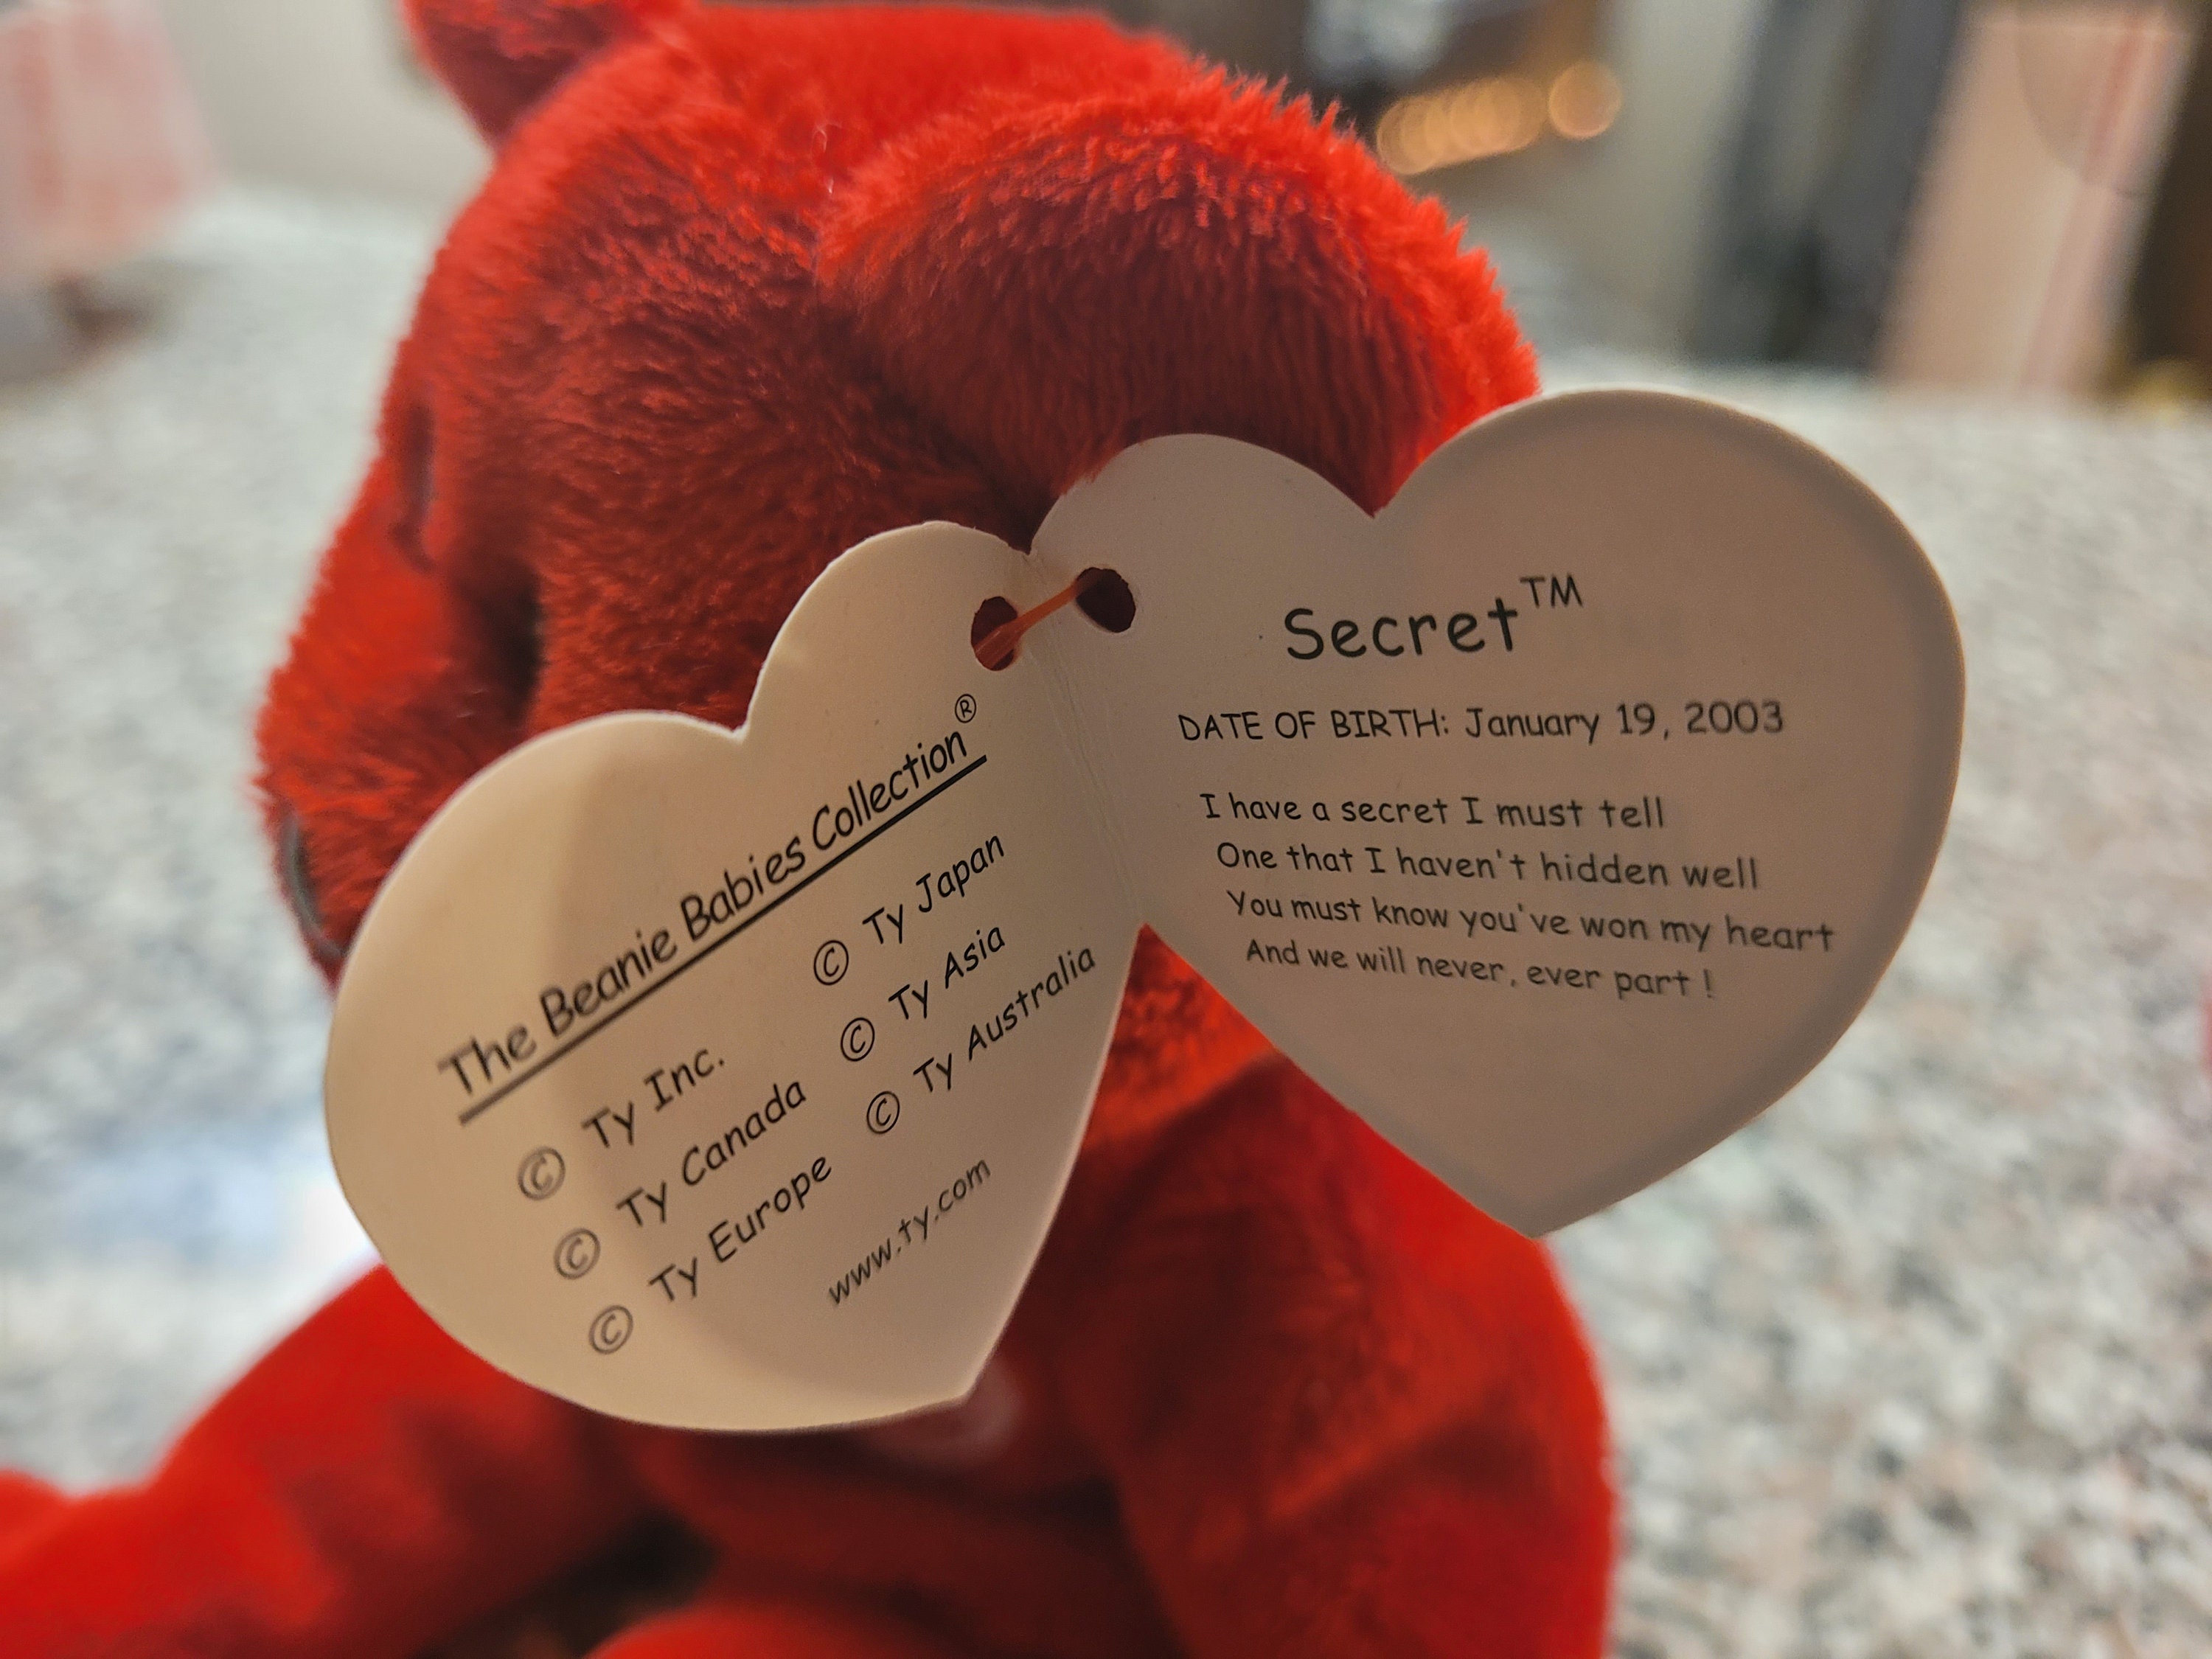 The Beanie Babies Collection®
© Ty Inc.
© Ty Canada
© Ty Europe
© Ty Japan
© Ty Asia
© Ty Australia
www.ty.com
Secret™
DATE OF BIRTH: January 19, 2003
I have a secret I must tell
One that I haven't hidden well
You must know you've won my heart
And we will never, ever part !